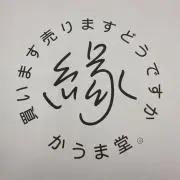 買います売りますどうですか
縁
かうま堂